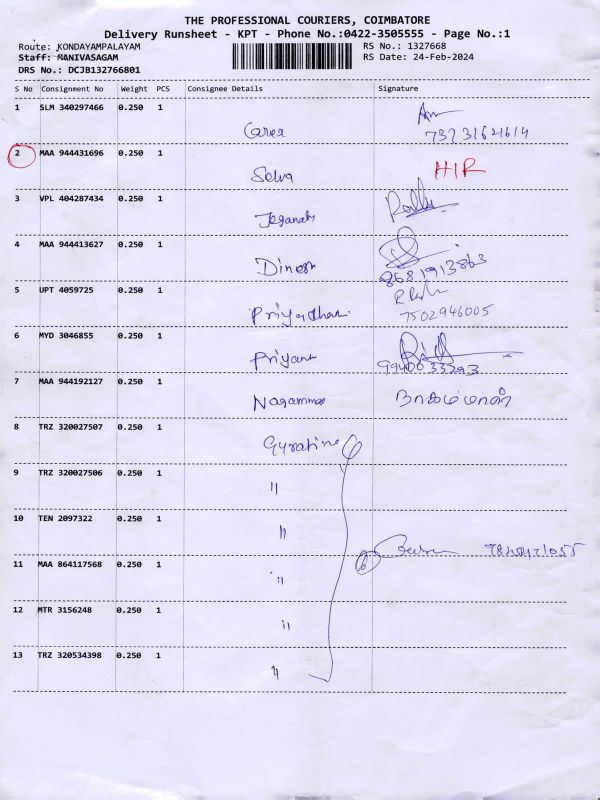 THE PROFESSIONAL COURIERS, COIMBATORE
Delivery Runsheet - KPT - Phone No.:0422-3505555 - Page No.:1
Route: KONDAYAMPALAYAM RS No.: 1327668
Staff: MANIVASAGAM RS Date: 24-Feb-2024
DRS No.: DCJB132766801
S No Consignment No Weight PCS Consignee Details Signature
1 SLM 340297466 0.250 1
2 MAA 944431696 0.250 1
Selva HIR
3 VPL 404287434 0.250 1
4 MAA 944413627 0.250 1
Dinesh 8681913863
5 UPT 4059725 0.250 1
7502946005
6 MYD 3046855 0.250 1
Priyant
7 MAA 944192127 0.250 1
Nagammal நாகம்மாள்
8 TRZ 320027507 0.250 1
9 TRZ 320027506 0.250 1
"
10 TEN 2097322 0.250 1
"
11 MAA 864117568 0.250 1
"
12 MTR 3156248 0.250 1
"
13 TRZ 320534398 0.250 1
"